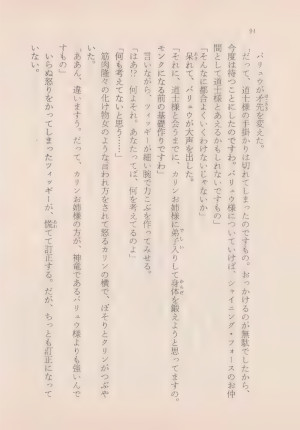 91
バリュウが矛先を変えた。
「だって、道士様の手掛かりは切れてしまったのですもの。おっかけるのが無駄でしたから、
今度は待つことにしたのですわ。バリュウ様についていけば、シャイニング・フォースのお仲
間として道士様とあえるかもしれないですもの」
「そんなに都合よくいくわけないじゃないか」
呆れて、バリュウが大声を出した。
「それに、道士様と会うまでに、カリンお姉様に弟子入りして身体を鍛えようと思ってますの。
モンクになる前の基礎作りですわ」
言いながら、ツィッギーが細い腕で力こぶを作ってみせる。
「はあ!? 何よそれ。あなたってば、何を考えてるのよ」
「何も考えてないと思う……」
筋肉隆々の化け物女のような言われ方をされて怒るカリンの横で、ぼそりとクリンがつぶや
いた。
「ああん、違いますう。だって、カリンお姉様の方が、神竜であるバリュウ様よりも強いんで
すもの」
いらぬ怒りをかってしまったツィッギーが、慌てて訂正する。だが、ちっとも訂正になって
いない。